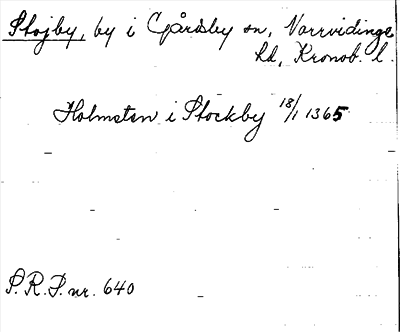 Stojby, by i Gårdsby sn, Norrvidinge
hd, Kronob. l.
Holmsten i Stockby 18/1 1365
S.R.P. nr. 640